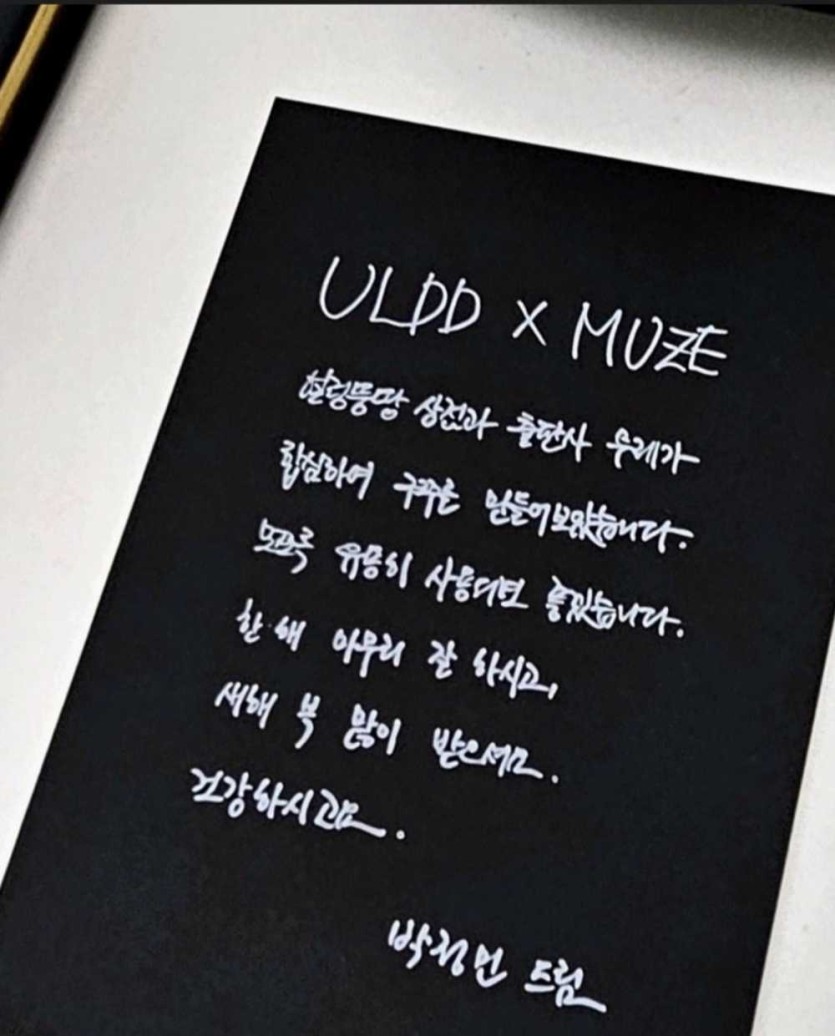 ULDD X MUZE
얼렁뚱땅 상점과 출판사 무제가
합심하여 굿즈를 만들어보았습니다.
모쪼록 유용히 사용되면 좋겠습니다.
한 해 마무리 잘 하시고,
새해 복 많이 받으세요.
건강하시고요.
박정민 드림